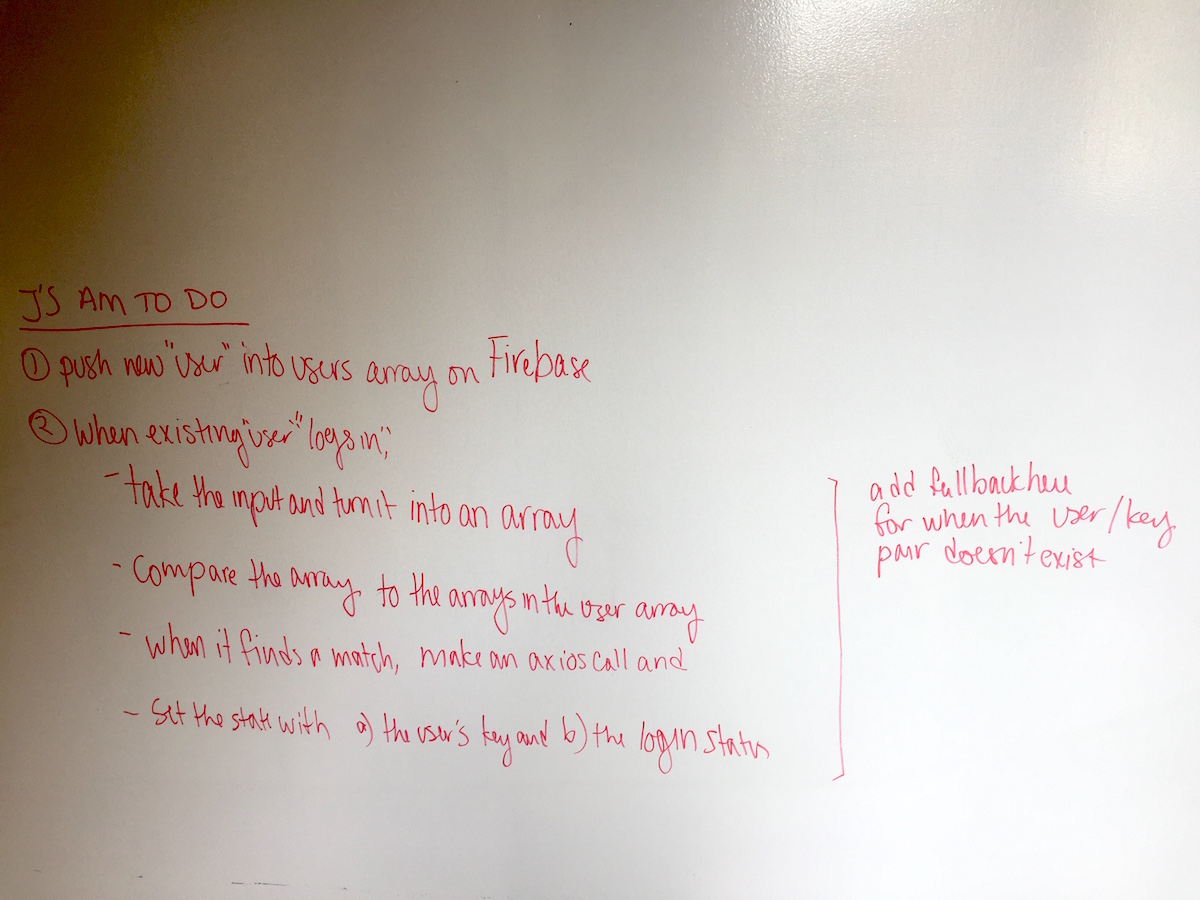 J'S AM TO DO
① push new "user" into users array on Firebase
② When existing "user" "logs in",
- take the input and turn it into an array
- Compare the array to the arrays in the user array
- when it finds a match, make an axios call and
- Set the state with a) the user's key and b) the login status
add fallback here
for when the user/key
pair doesn't exist